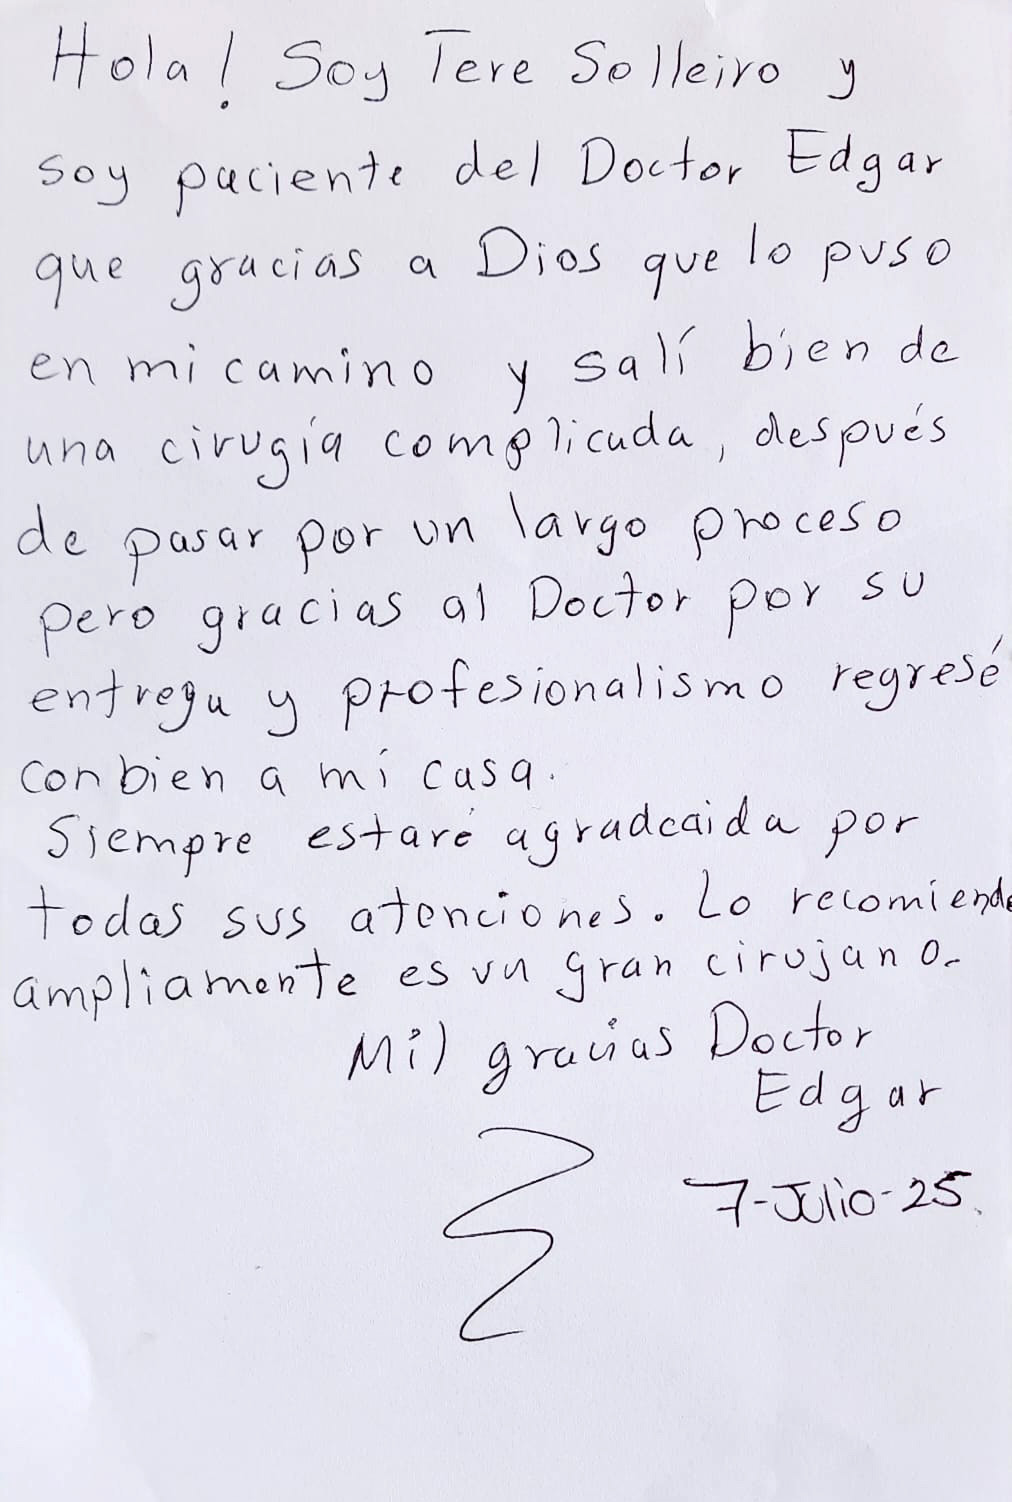 Hola! Soy Tere Solleiro y
soy paciente del Doctor Edgar
que gracias a Dios que lo puso
en mi camino y salí bien de
una cirugía complicada, después
de pasar por un largo proceso
pero gracias al Doctor por su
entrega y profesionalismo regresé
con bien a mi casa.
Siempre estaré agradcaida por
todas sus atenciones. Lo recomiendo
ampliamente es un gran cirujano.
Mil gracias Doctor
Edgar
7-Julio-25.